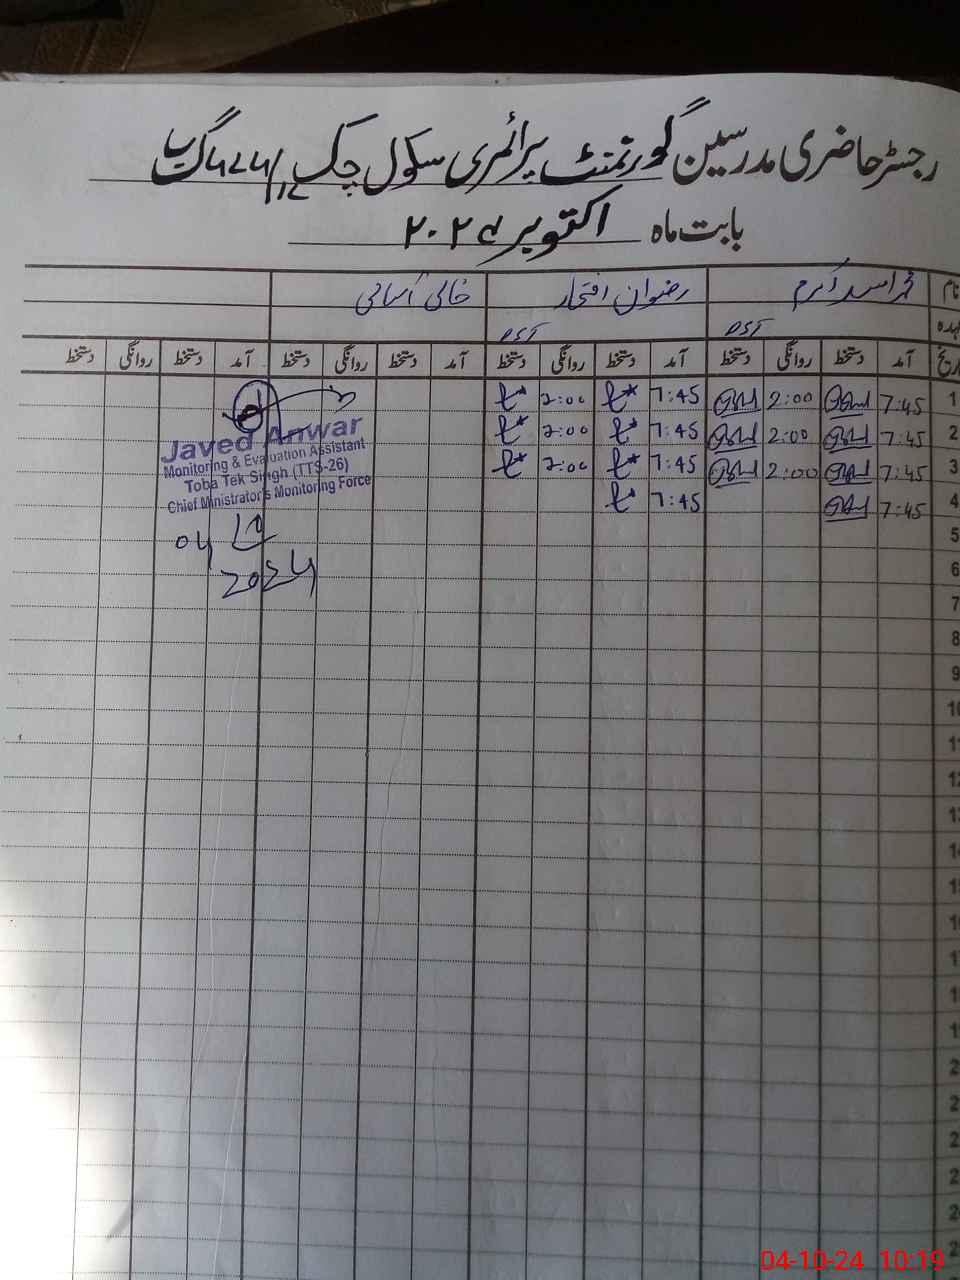 رجسٹر حاضری مدرسین گورنمنٹ پرائمری سکول چک گ ب
بابت ماہ اکتوبر ۲۰۲۴
نام محمد اسد اکرم رضوان افتخار خالی آسامی
عہدہ PST PST
تاریخ آمد دستخط روانگی دستخط آمد دستخط روانگی دستخط آمد دستخط روانگی دستخط آمد دستخط روانگی دستخط
1 7:45 2:00 7:45 2:00
2 7:45 2:00 7:45 2:00
3 7:45 2:00 7:45 2:00
4 7:45 7:45
5
6
7
8
9
10
11
12
13
14
15
16
17
18
19
Javed Anwar
Monitoring & Evaluation Assistant
Toba Tek Singh (TTS-26)
Chief Ministrator's Monitoring Force
04 10
2024
04-10-24 10:19